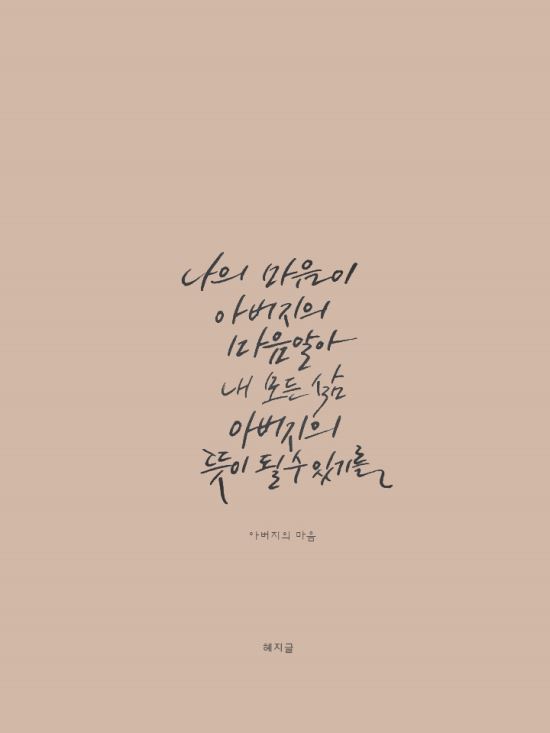 나의 마음이
아버지의
마음알아
내 모든 삶
아버지의
뜻이 될 수 있기를
아버지의 마음
혜지글